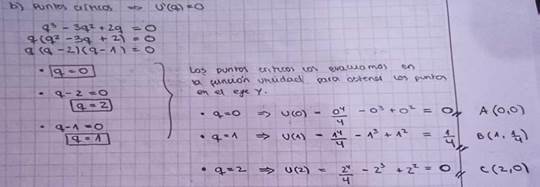 b) Puntos críticos ⇒ U'(q)=0
q³ - 3q² + 2q = 0
q (q² - 3q + 2) = 0
q (q - 2)(q - 1) = 0
• q = 0
• q - 2 = 0
q = 2
• q - 1 = 0
q = 1
Los puntos críticos los evaluamos en
la función utilidad para obtener los puntos
en el eje Y.
• q=0 ⇒ U(0) = 0⁴/4 - 0³ + 0² = 0 // A (0,0)
• q=1 ⇒ U(1) = 1⁴/4 - 1³ + 1² = 1/4 // B (1, 1/4)
• q=2 ⇒ U(2) = 2⁴/4 - 2³ + 2² = 0 // C (2,0)